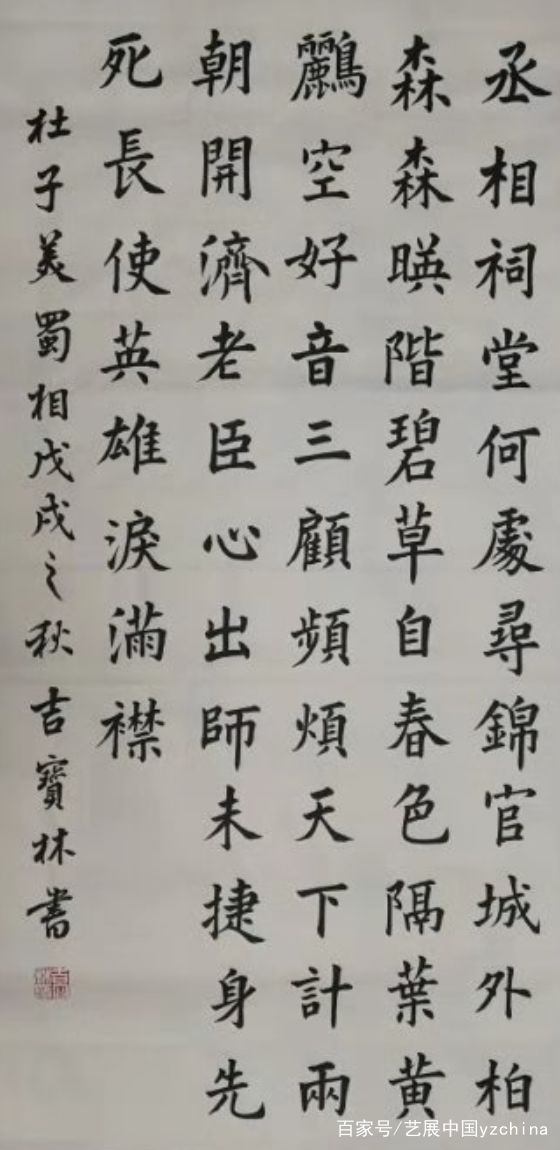 丞相祠堂何處尋錦官城外柏
森森暎階碧草自春色隔葉黃
鸝空好音三顧頻煩天下計兩
朝開濟老臣心出師未捷身先
死長使英雄淚滿襟
杜子美蜀相戊戌之秋吉寶林書
百家号/艺展中国yzchina